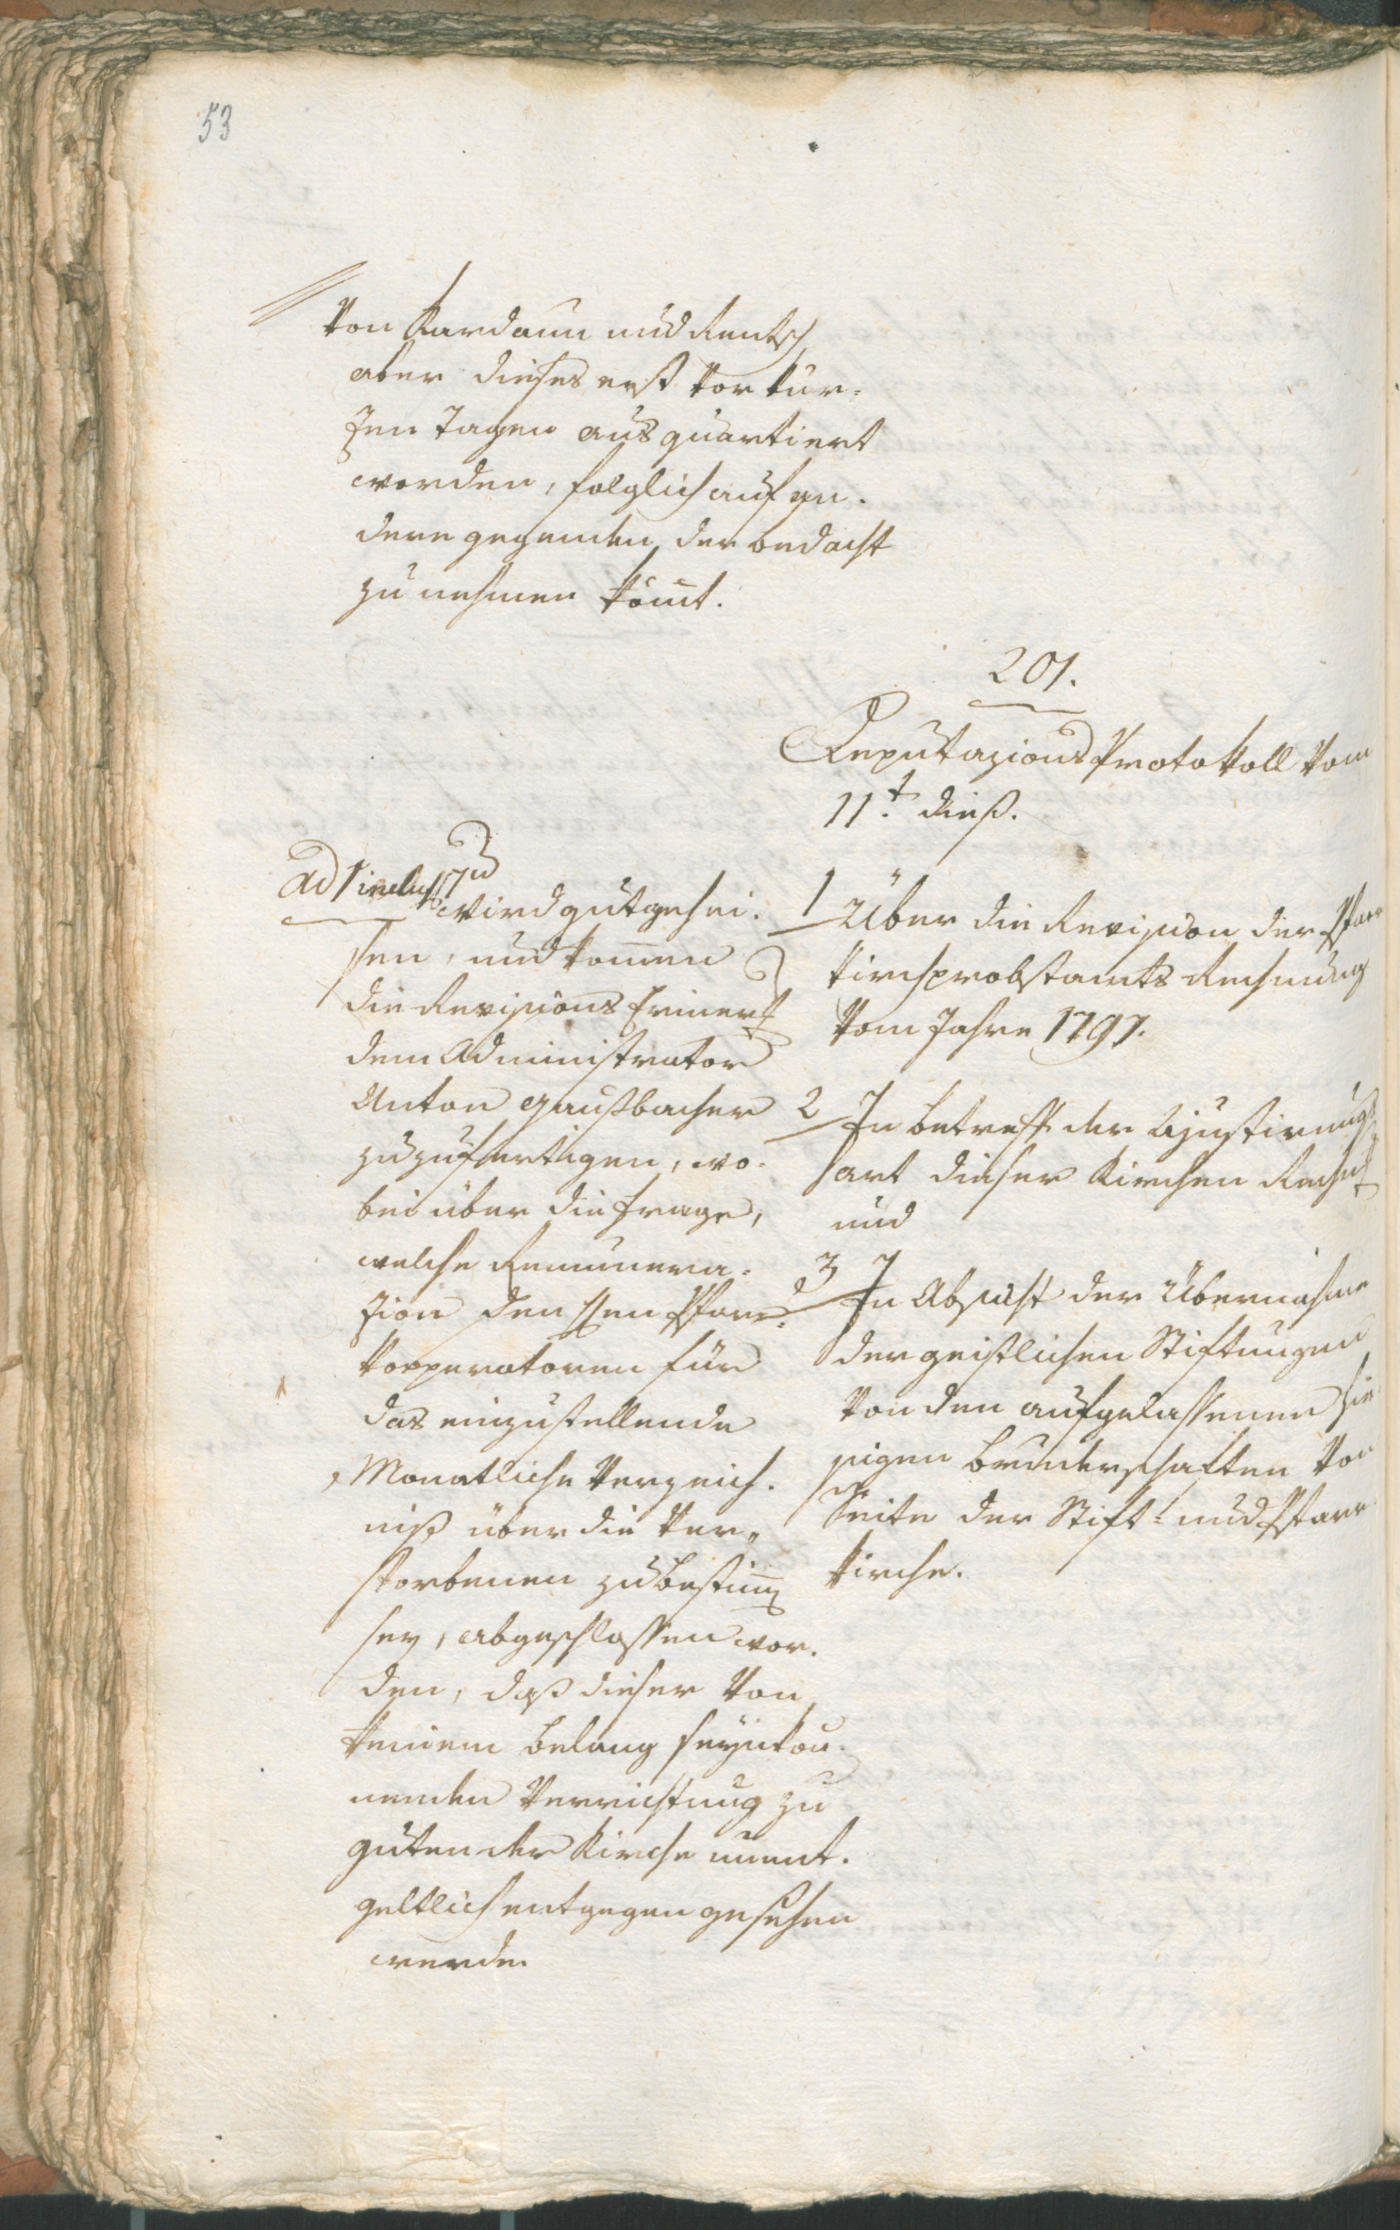 53
Von Kardaun und Rentsch
aber dieses erst vor kur-
zen Tagen ausquartiert
worden, folglich auf an-
dere gegenden der bedacht
zu nehmen kömt.
201.
Deputazions Protokoll vom
11t. dieß.
ad 1 inclus. 17
wird gutgehei-
ssen, und kommen
die Revisions Erinerg
dem Administrator
Anton Gaußbacher
zuzufertigen, wo-
bei über die frage,
welche Remunera-
zion den Hen Pfarr-
kooperatoren für
das einzustellende
Monatliche Verzeich-
niß über die Ver-
storbenen zu bestimen
sey, abgeschlossen wor-
den, daß dieser von
keinem belang seyn kön-
nenden Verrichtung zu
guten der Kirche unent-
geltlich entgegen gesehen
werde.
1 Über die Revision der Pfarr
kirchprobstamts Rechnung
vom Jahre 1797.
2 In betreff der Ajustirungs
art dieser Kirchen Rechng
und
3 In Absicht der Übernahme
der geistlichen Stiftungen
von den aufgelassenen hie
sigen bruderschaften von
Seite der Stift- und Pfarr
kirche.